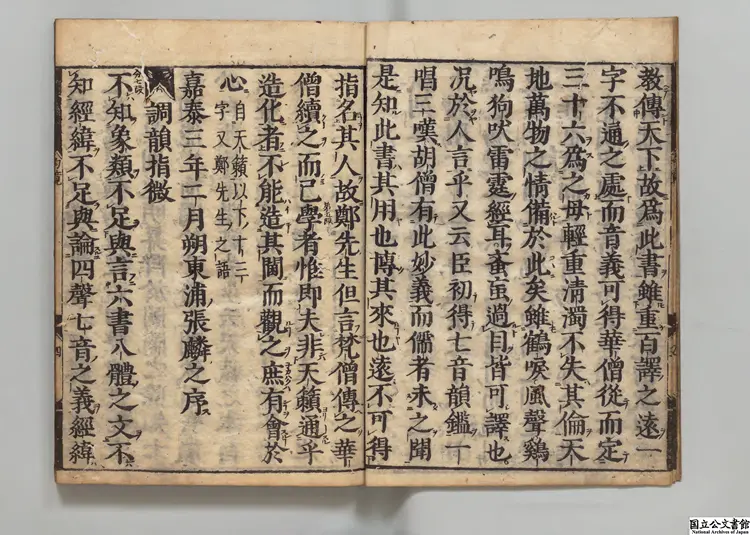 教傳天下故爲此書雖重百譯之遠一
字不通之處而音義可得華僧從而定
三十六爲之母輕重清濁不失其倫天
地萬物之情備於此矣雖鶴唳風聲鷄
鳴狗吠雷霆經耳蚊䖟過目皆可譯也
况於人言乎又云臣初得七音韻鑑一
唱三嘆胡僧有此妙義而儒者未之聞
是知此書其用也博其來也遠不可得
指名其人故鄭先生但言梵僧傳之華
僧續之而已學者惟即夫非天籟通乎
造化者不能造其閫而觀之庶有會於
心自天籟以下十二字又鄭先生之語
嘉泰三年二月朔東浦張麟之序
調韻指微
不知象類不足與言六書八體之文不
知經緯不足與論四聲七音之義經緯
国立公文書館
National Archives of Japan